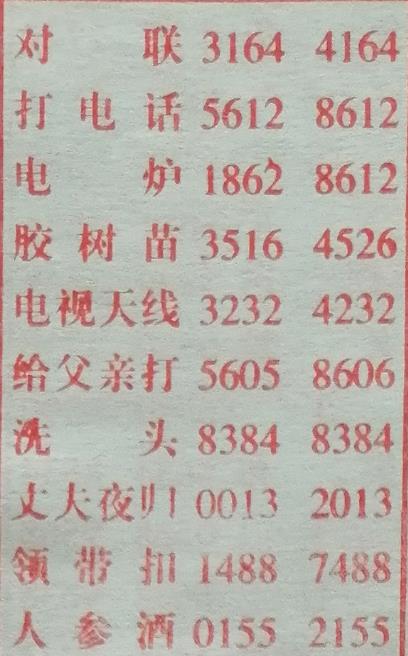 对联 3164 4164
打电话 5612 8612
电炉 1862 8612
胶树苗 3516 4526
电视天线 3232 4232
给父亲打 5605 8606
洗头 8384 8384
丈夫夜归 0013 2013
领带扣 1488 7488
人参酒 0155 2155